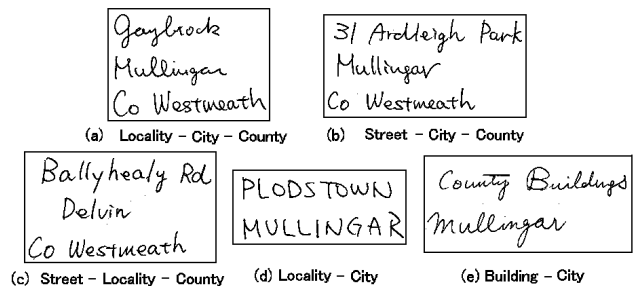 Gaybrock
Mullingar
Co Westmeath
(a) Locality - City - County
31 Ardleigh Park
Mullingar
Co Westmeath
(b) Street - City - County
Ballyhealy Rd
Delvin
Co Westmeath
(c) Street - Locality - County
PLODSTOWN
MULLINGAR
(d) Locality - City
County Buildings
Mullingar
(e) Building - City